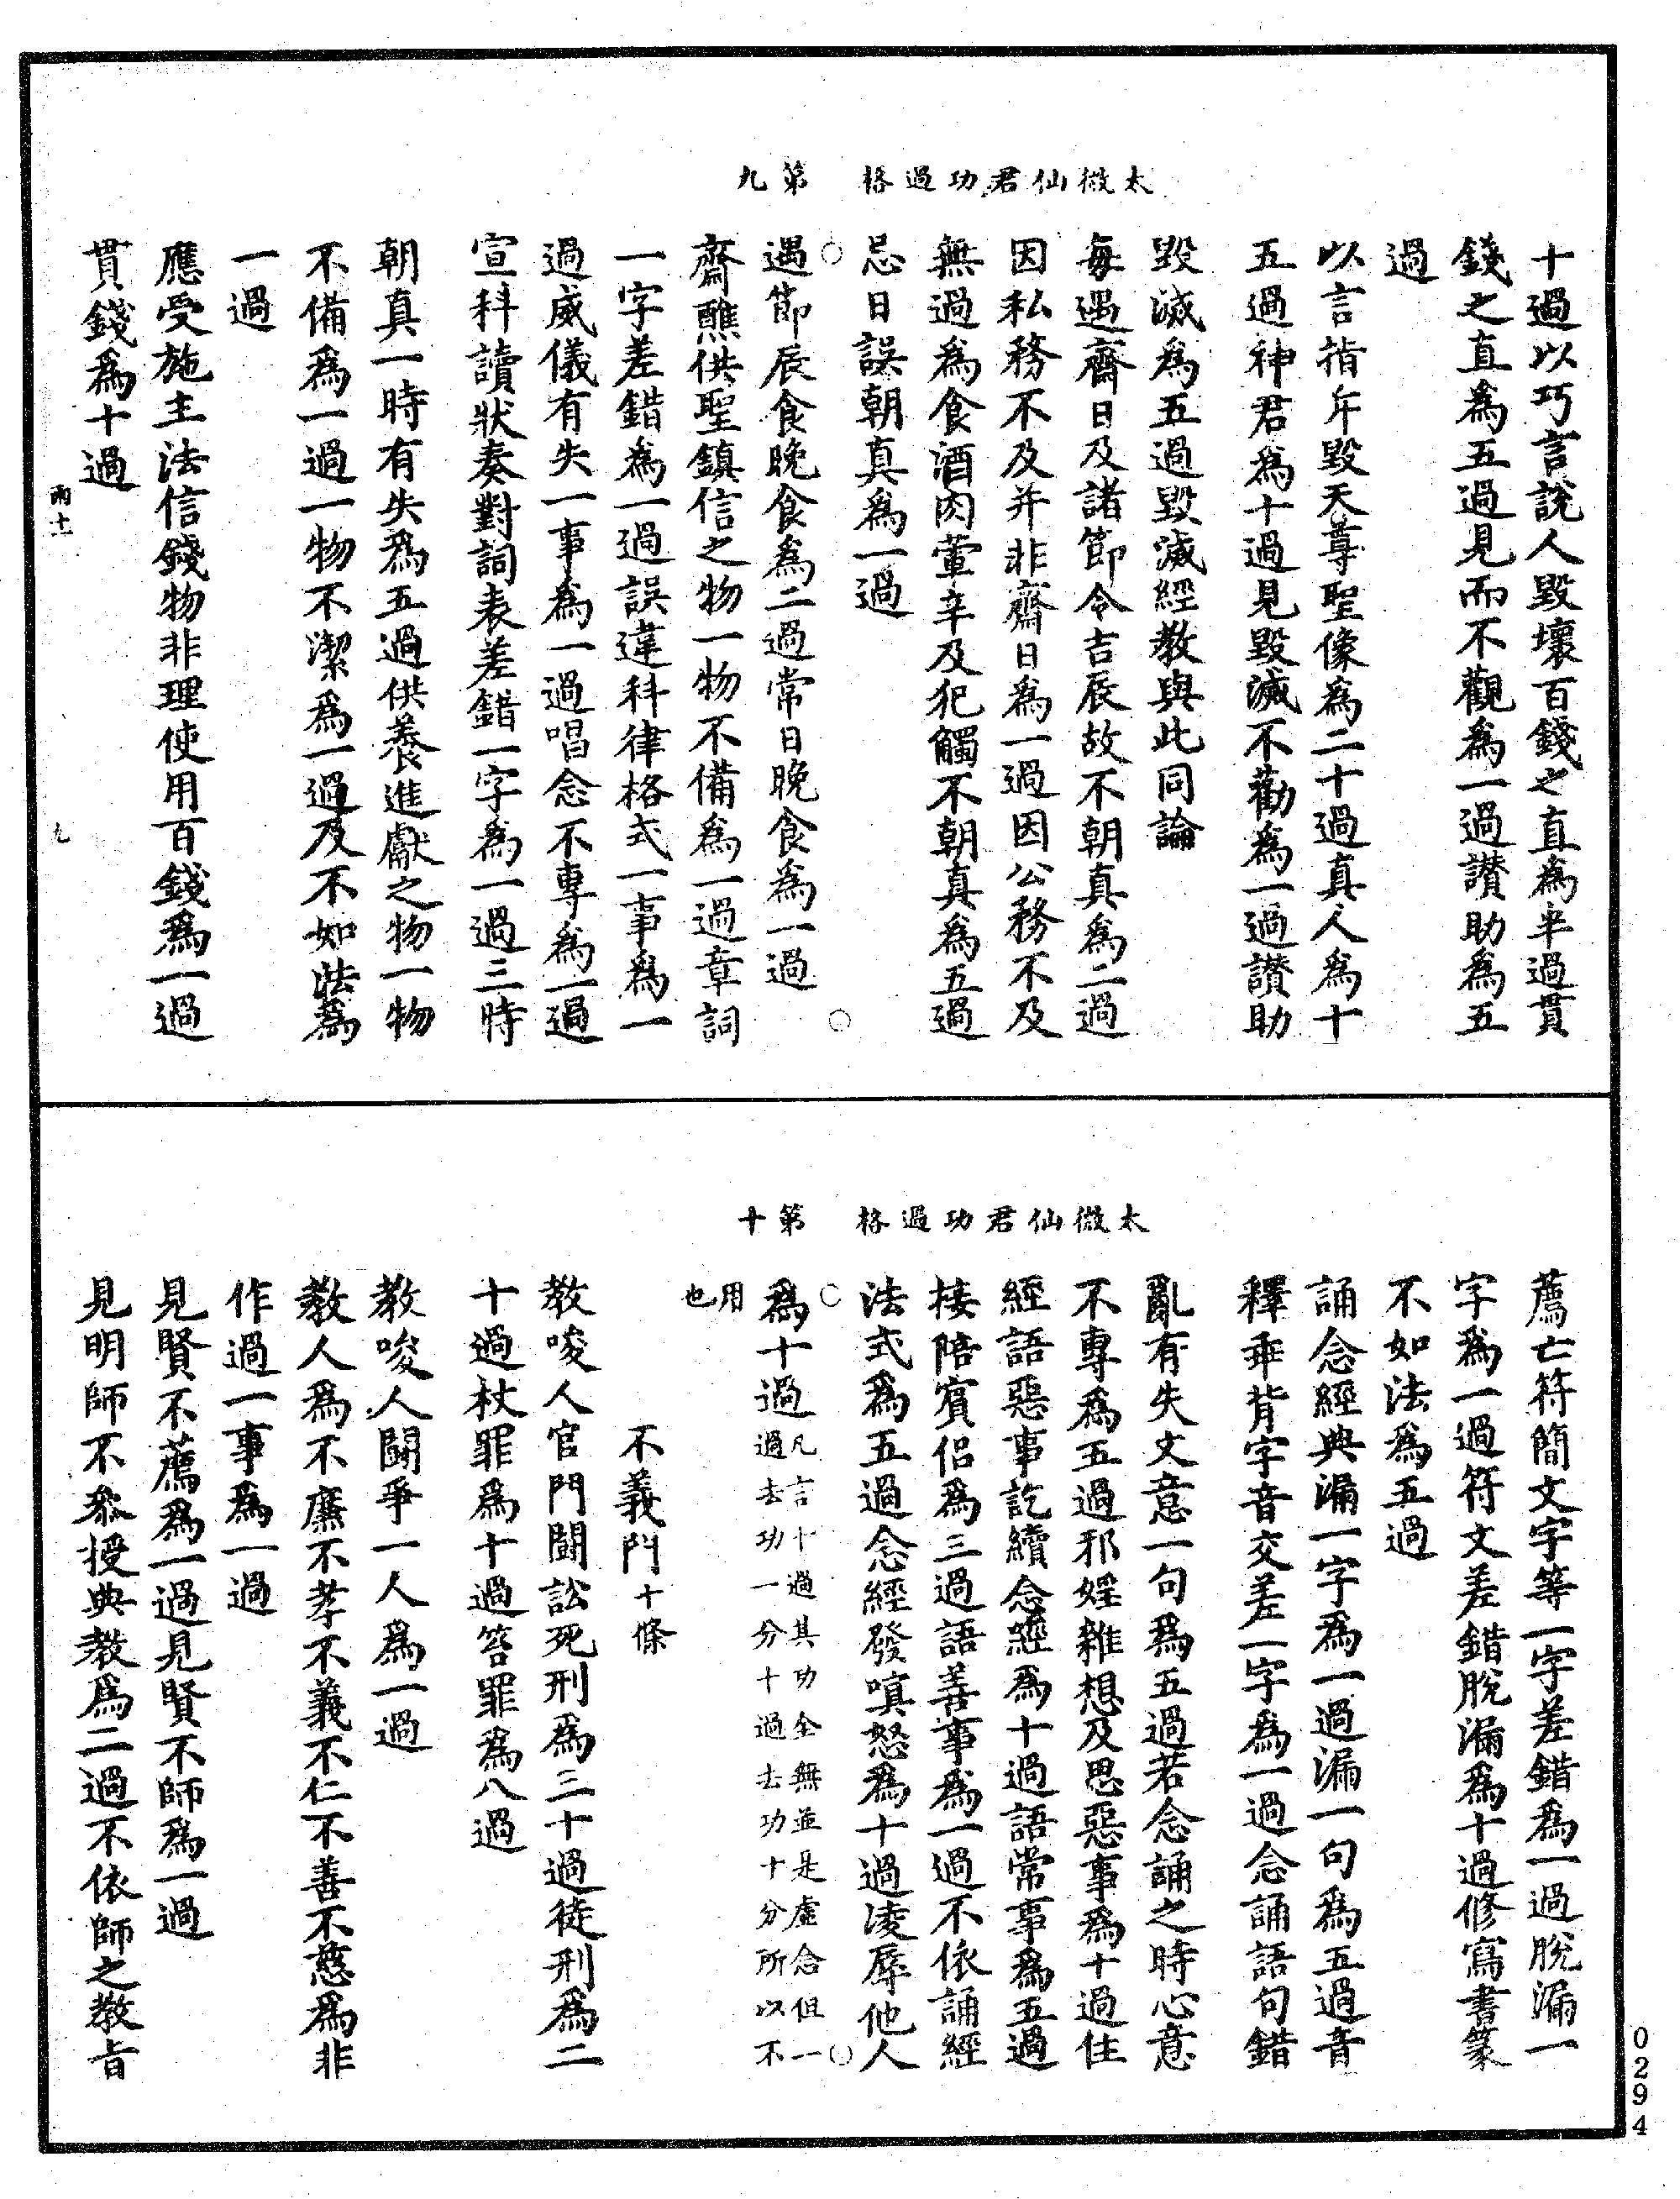 太微仙君功過格　第九
十過以巧言說人毀壞百錢之直為半過貫
錢之直為五過見而不觀為一過讃助為五
過
以言指斥毀天尊聖像為二十過真人為十
五過神君為十過見毀滅不勸為一過讃助
毀滅為五過毀滅經教與此同論
每遇齋日及諸節令吉辰故不朝真為二過
因私務不及并非齋日為一過因公務不及
無過為食酒肉葷辛及犯觸不朝真為五過
忌日誤朝真為一過
遇節辰食晚食為二過常日晚食為一過
齋醮供聖鎮信之物一物不備為一過章詞
一字差錯為一過誤違科律格式一事為一
過威儀有失一事為一過唱念不專為一過
宣科讀狀奏對詞表差錯一字為一過三時
朝真一時有失為五過供養進獻之物一物
不備為一過一物不潔為一過及不如法為
一過
應受施主法信錢物非理使用百錢為一過
貫錢為十過
雨十一　九
太微仙君功過格　第十
薦亡符簡文字等一字差錯為一過脫漏一
字為一過符文差錯脫漏為十過修寫書篆
不如法為五過
誦念經典漏一字為一過漏一句為五過音
釋乖背字音交差一字為一過念誦語句錯
亂有失文意一句為五過若念誦之時心意
不專為五過邪婬雜想及思惡事為十過住
經語惡事訖續念經為十過語常事為五過
接陪賓侶為三過語善事為一過不依誦經
法式為五過念經發嗔怒為十過凌辱他人
為十過凡言十過其功全無並是虛念但一
過去功一分十過去功十分所以不
用
也
不義門十條
教唆人官門鬭訟死刑為三十過徒刑為二
十過杖罪為十過笞罪為八過
教唆人鬭爭一人為一過
教人為不廉不孝不義不仁不善不慈為非
作過一事為一過
見賢不薦為一過見賢不師為一過
見明師不叅授典教為二過不依師之教旨
0294